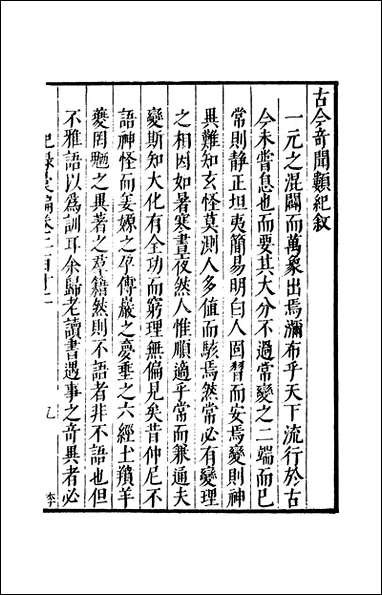 古今奇聞類紀叙
一元之混闢而萬象出焉瀰布乎天下流行於古
今未嘗息也而要其大分不過常變之二端而已
常則静正坦夷簡易明白人固習而安焉變則神
異難知玄怪莫測人多值而駭焉然常必有變理
之相因如暑寒晝夜然人惟順適乎常而兼通夫
變斯知大化有全功而窮理無偏見矣昔仲尼不
語神怪而姜嫄之孕傅巖之夢垂之六經土羵羊
夔罔䰡之異著之羣籍然則不語者非不語也但
不雅語以爲訓耳余歸老讀書遇事之竒異者必
紀錄彙編卷二百十二
九
李